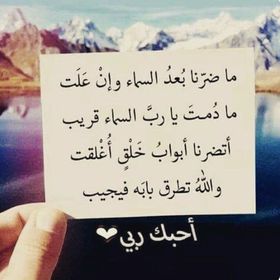 ما ضرّنا بُعدُ السماء وإنْ عَلَت
ما دُمتَ يا ربَّ السماء قريب
أتضرنا أبوابُ خَلْقٍ أُغْلقت
واللهُ تطرق بابَه فيجيب
أحبك ربي❤